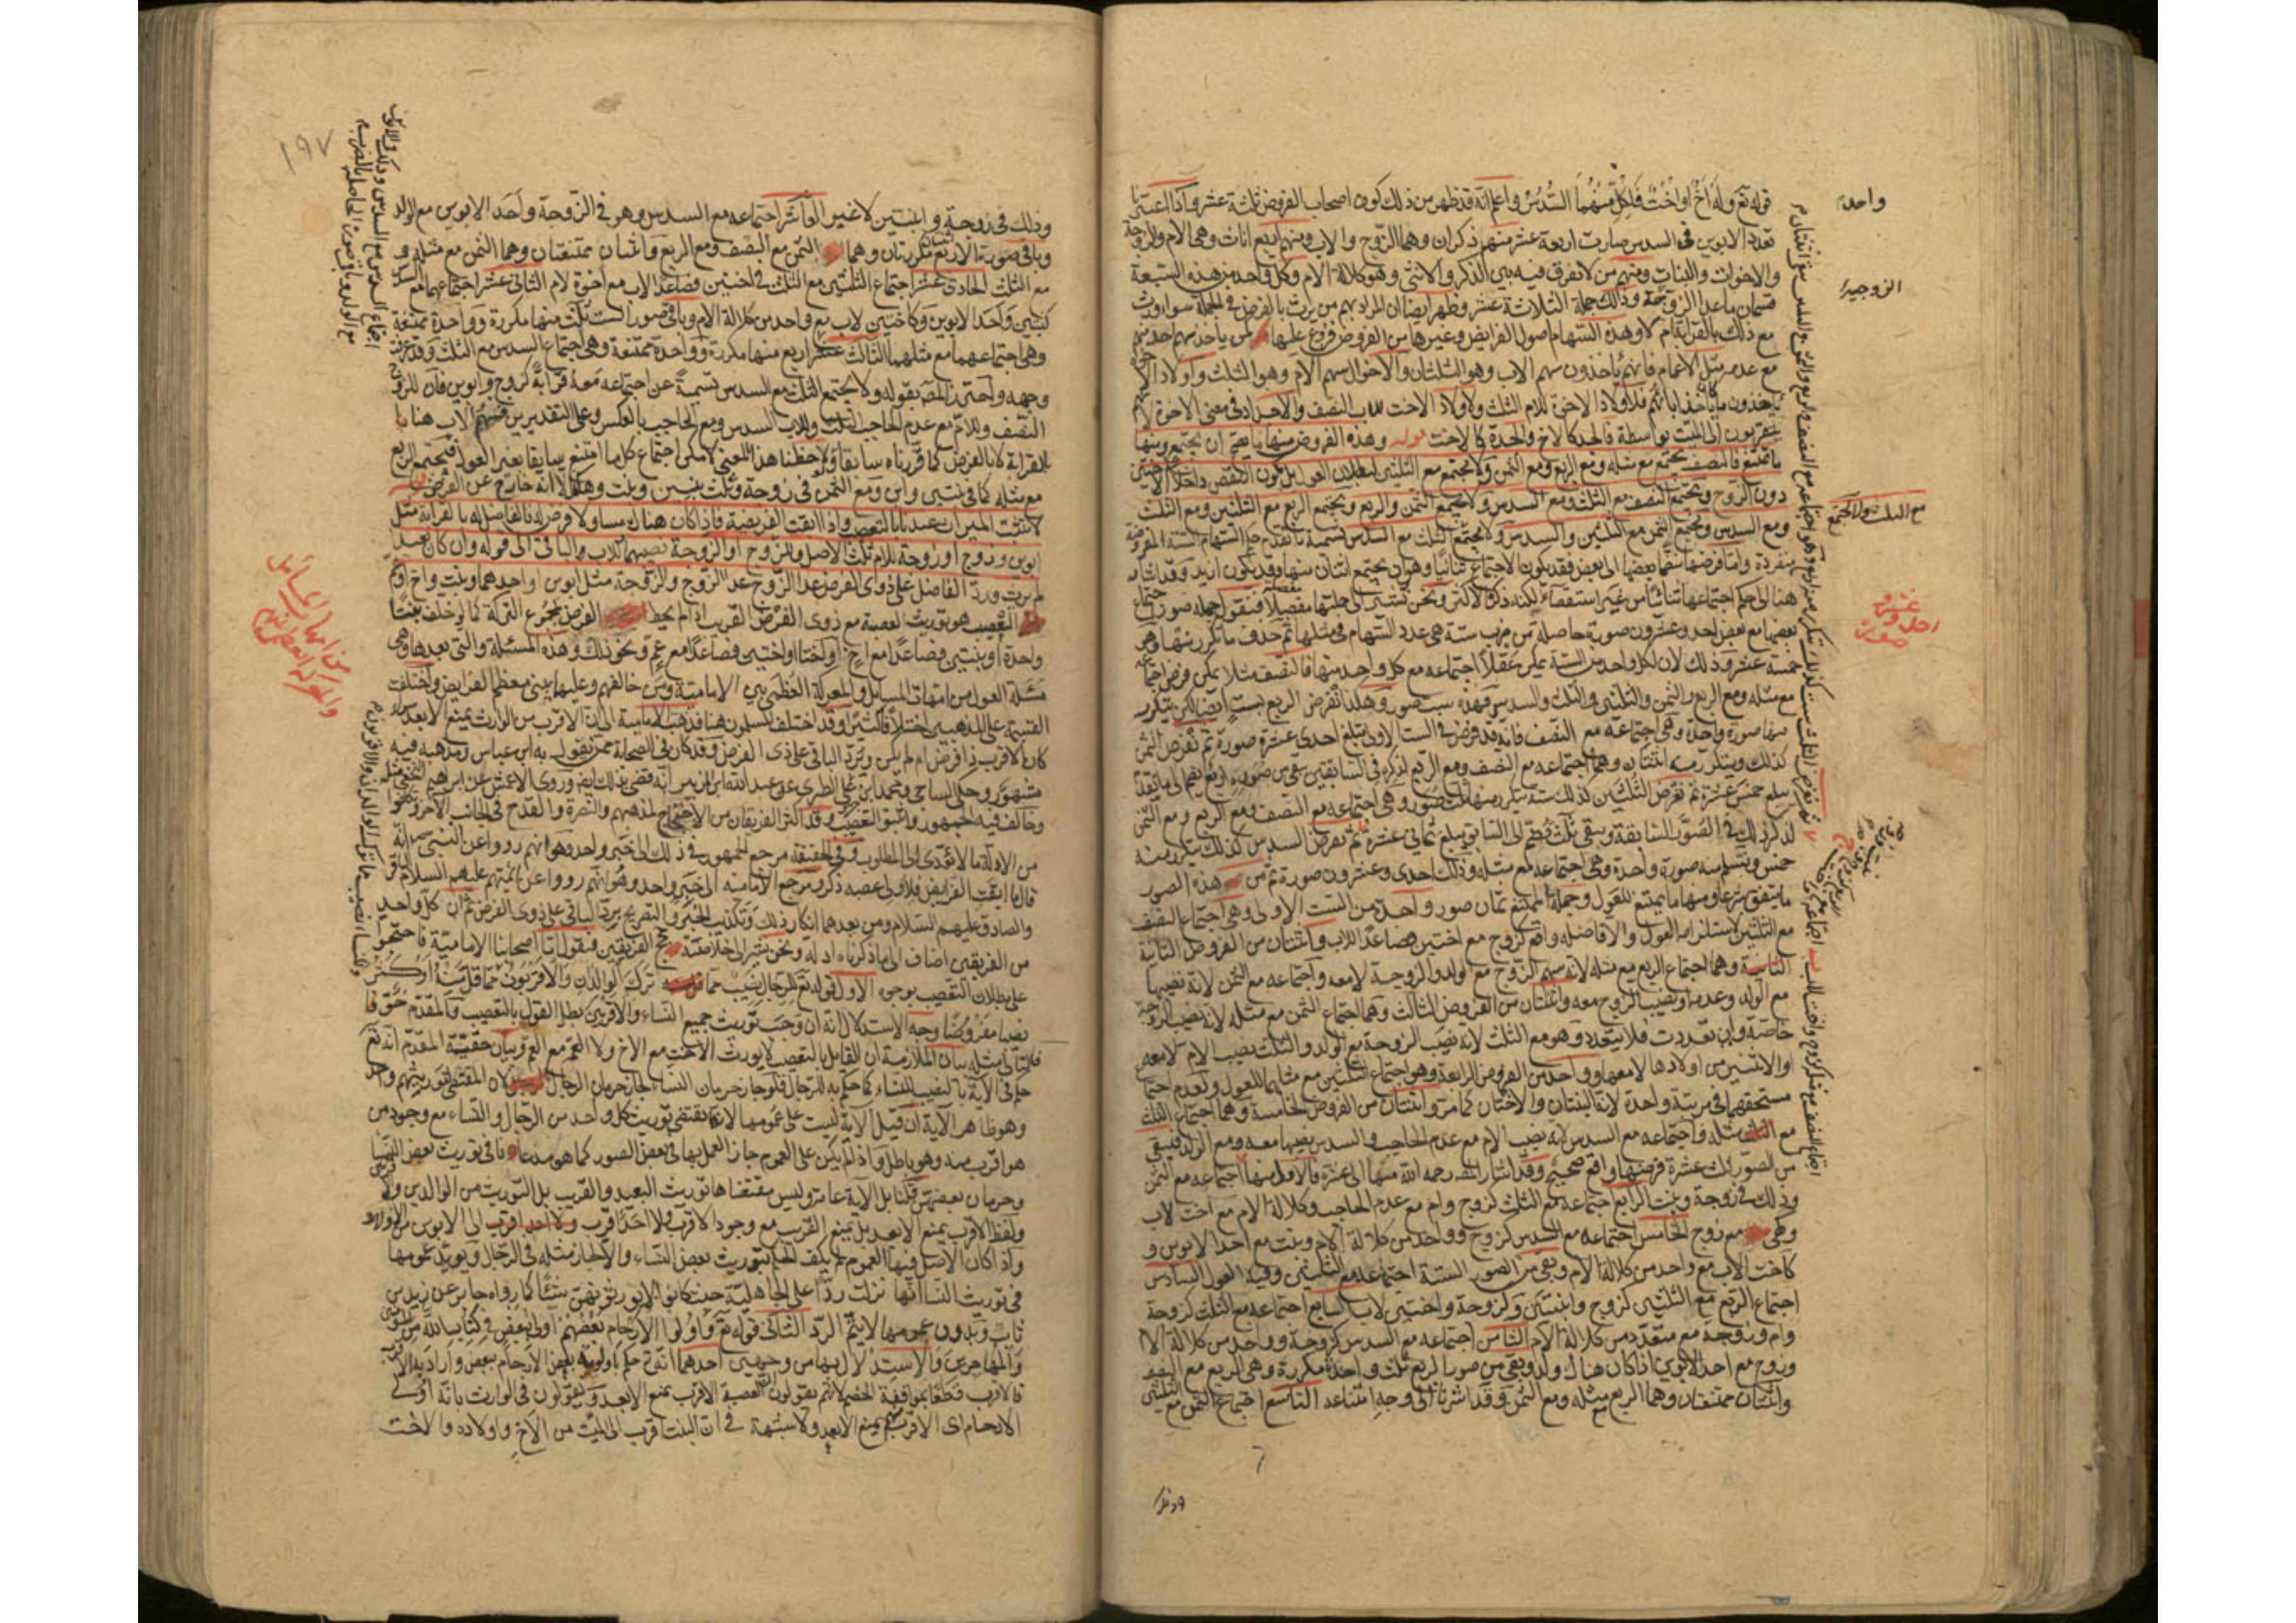 قوله تع وله أخ او اخت فلكل منهما السدس واعلم انه قد ظهر من ذلك كون اصحاب الفروض ثلثة عشر واذا اعتبرنا
تعدد الابوين في السدس صارت اربعة عشر منهم ذكران وهما الزوج والاب ومنهم اربع اناث وهي الام والزوجة
والاخوات والبنات ومنهم من لا تفرق فيه بين الذكر والانثى وهو كلالة الام وكل واحد من هذه السبعة
قسمان ما عدا الزوجين وذلك جملة الثلاثة عشر وظهر ايضا ان المراد بهم من يرث بالفرض في الجملة سواء ورث
مع ذلك بالقرابة ام لا وهذه السهام اصول الفرايض وغيرها من الفروض فروع عليها
مع عدمه مثل الاعمام فانهم ياخذون سهم الاب وهو الثلثان والاخوال سهم الام وهو الثلث واولاد
ياخذون ما ياخذ آباؤهم فلاولاد الاخوة للام الثلث ولاولاد الاخت للاب النصف والاجداد في معنى الاخوة
يتقربون الى الميت بواسطة فالجد كالاخ والجدة كالاخت قوله وهذه الفروض منها ما يصح ان يجتمع ومنها
ما يمتنع فالنصف يجتمع مع مثله ومع الربع ومع الثمن ولا يجتمع مع الثلثين لبطلان العول بل يكون النقص داخلا على الاختين
دون الزوج ويجتمع النصف مع الثلث ومع السدس ولا يجتمع الثمن والربع ويجتمع الربع مع الثلثين ومع الثلث
ومع السدس ويجتمع الثمن مع الثلثين والسدس ولا يجتمع الثلث مع السدس تسمية ما تقدم حكم السهام الستة المفروضة
منفردة واما فرضها منضما بعضها الى بعض فقد يكون الاجتماع ثنائيا وهو ان يجتمع اثنان منها وقد يكون ازيد وقد اشار
هنا الى حكم اجتماعها ثنائيا من غير استقصاء لكنه ذكر الاكثر ونحن نشير الى جملتها مفصلا فنقول جملة صور اجتماع
بعضها مع بعض احد وعشرون صورة حاصلة من ضرب ستة هي عدد السهام في مثلها ثم حذف ما تكرر منها وهو
خمسة عشر وذلك لان لكل واحد من الستة يمكن عقلا اجتماعه مع كل واحد منها فالنصف مثلا يمكن فرض اجتماعه
مع مثله ومع الربع والثمن والثلثين والثلث والسدس فهذه ست صور وهكذا تفرض الربع بست ايضا لكن يتكرر
منها صورة واحدة وهي اجتماعه مع النصف فانه قد فرض في الست الاولى يبلغ احدى عشرة صورة ثم تفرض الثمن
كذلك ويتكرر منه اثنتان وهما اجتماعه مع النصف ومع الربع لذكره في السابقين يبقى من صوره اربع تضم الى ما تقدم
يبلغ خمس عشرة ثم تفرض الثلثين كذلك ستة تكرر منها ثلث صور وهي اجتماعه مع النصف ومع الربع ومع الثمن
لذكر ذلك في الصور السابقة ويبقى ثلث تضم الى السابق يبلغ ثماني عشرة ثم تفرض السدس كذلك يتكرر منه
خمس وتسلم منه صورة واحدة وهي اجتماعه مع مثله وذلك احدى وعشرون صورة ثم من هذه الصور
ما يتفق شرعا ومنها ما يمتنع للعول وجملة الممتنع ثمان صور واحدة من الست الاولى وهي اجتماع النصف
مع الثلثين لاستلزامه العول والا فاصله واقع كزوج مع اختين فصاعدا للاب واثنتان من الفروض الثانية
وهما اجتماع الربع مع مثله لانه سهم الزوج مع الولد والزوجة لا معه واجتماعه مع الثمن لانه نصيبها
مع الولد وعدمه او نصيب الزوج معه واثنتان من الفروض الثالث وهما اجتماع الثمن مع مثله لانه نصيب الزوجة
خاصة وان تعددت فلا يتعدد وهو مع الثلث لانه نصيب الزوجة مع الولد والثلث نصيب الام لا معه
او الاثنين من اولادها لا معه وواحد من الفروض الرابعة وهو اجتماع الثلثين مع مثلهما للعول ولعدم اجتماع
مستحقهما في مرتبة واحدة لانه البنتان والاختان كما مر واثنتان من الفروض الخامسة وهما اجتماع الثلث
مع مثله واجتماعه مع السدس لانه نصيب الام مع عدم الحاجب والسدس نصيبها معه ومع الولد فيبقى
من الصور ثلث عشرة فرضها واقع صحيح وقد اشار المصنف رحمه الله منها الى عشرة فالاول منها اجتماعه مع الثمن
وذلك في زوجة وبنت الرابع اجتماعه مع الثلث كزوج وام مع عدم الحاجب وكلالة الام مع اخت لاب
وهي مع زوج الخامس اجتماعه مع السدس كزوج وواحد من كلالة الام وبنت مع احد الابوين و
كاخت لاب مع واحد من كلالة الام وبقي من الصور الستة اجتماعه مع الثلثين وفيه العول السادس
اجتماع الربع مع الثلثين كزوج وابنتين وكزوجة واختين لاب السابع اجتماعه مع الثلث كزوجة
وام وزوجة مع متعدد من كلالة الام الثامن اجتماعه مع السدس كزوجة وواحد من كلالة الام
وزوج مع احد الابوين اذا كان هناك ولد وبقي من صور الربع ثلث واحدة مكررة وهي الربع مع النصف
واثنتان ممتنعتان وهما الربع مع مثله ومع الثمن وقد اشرنا الى وجه امتناعه التاسع اجتماع الثمن مع الثلثين
واحدة
الزوجين
مع الثلث ولا يجتمع
احد وعشرون صورة
١٩٧
وذلك في زوجة وابنتين لا غير العاشر اجتماعه مع السدس وهو في الزوجة واحد الابوين مع الولد
وباقي صوره الاربع مكررتان وهما الثمن مع النصف ومع الربع واثنتان ممتنعتان وهما الثمن مع مثله و
مع الثلث الحادي عشر اجتماع الثلثين مع الثلث في اختين فصاعدا لاب مع اخوة لام الثاني عشر اجتماعهما مع السدس
كبنتين واحد الابوين وكاختين لاب مع واحد من كلالة الام وباقي صوره الست ثلث منها مكررة وواحدة ممتنعة
وهي اجتماعهما مع مثلهما الثالث عشر اربع منها مكررة وواحدة ممتنعة وهي اجتماع السدس مع الثلث وقد عرفت
وجهه واحترز المصنف بقوله ولا يجتمع الثلث مع السدس تسمية عن اجتماعه معه قرابة كزوج وابوين فان للزوج
النصف وللام مع عدم الحاجب الثلث وللاب السدس ومع الحاجب بالعكس وعلى التقديرين فسهم الاب هنا
بالقرابة لا بالفرض كما قررناه سابقا ولو لاحظنا هذا المعنى لامكن اجتماع كل ما امتنع سابقا بغير العول فيجتمع الربع
مع مثله كما في بنتين وابن ومع الثمن في زوجة وثلث بنين وبنت وهكذا الا انه خارج عن الفرض
لا يثبت الميراث عندنا بالتعصيب واذا ابقت الفريضة فاذا كان هناك مساو لا فرض له فالفاضل له بالقرابة مثل
ابوين وزوج او زوجة للام ثلث الاصل وللزوج او الزوجة نصيبهما وللاب الباقي الى قوله وان كان بعيدا
لم يرث ورد الفاضل على ذوي الفرض عدا الزوج والزوجة مثل ابوين او احدهما وبنت واخ او عم
التعصيب هو توريث العصبة مع ذوي الفرض القريب اذا لم يحط الفرض بمجموع التركة كما لو خلف بنتا
واحدة او بنتين فصاعدا مع اخ او اختا او اختين فصاعدا مع عم ونحو ذلك وهذه المسئلة والتي بعدها وهي
مسئلة العول من امهات المسائل والمعركة العظمى بين الامامية ومن خالفهم وعليهما يبنى معظم الفرايض واختلفت
القسمة على المذهبين اختلافا كثيرا وقد اختلف المسلمون هنا فذهب الامامية الى ان الاقرب من الوارث يمنع الابعد سواء
كان الاقرب ذا فرض ام لم يكن ويرد الباقي على ذي الفرض وقد كان في الصحابة ممن يقول به ابن عباس ومذهبه فيه
مشهور وحكى الساجي ومحمد بن جرير الطبري عن عبد الله ابن الزبير انه قضى بذلك ايضا وروى الاعمش عن ابراهيم النخعي مثله
وخالف فيه الجمهور واثبتوا التعصيب وقد اكثر الفريقان من الاحتجاج لمذهبهم والنصرة والقدح في الجانب الآخر
من الادلة ما لا يؤدى الى المطلوب وفي الحقيقة مرجع الجمهور في ذلك الى خبر واحد وهو انهم رووا عن النبي ص انه
قال ما ابقت الفرايض فلاولى عصبة ذكر ومرجع الامامية الى خبر واحد وهو انهم رووا عن ائمتهم عليهم السلام
والصادق عليهم السلام ومن بعدهما انكار ذلك وتكذيب الخبر والتصريح برد الباقي على ذوي الفرض ثم ان كل واحد
من الفريقين اضاف الى ما ذكرناه ادلة ونحن نشير الى خلاصة حجج الفريقين فنقول اما اصحابنا الامامية فاحتجوا
على بطلان التعصيب بوجوه الاول قوله تع للرجال نصيب مما ترك الوالدان والاقربون مما قل منه او كثر
نصيبا مفروضا وجه الاستدلال انه اوجب توريث جميع النساء والاقربين بطل القول بالتعصيب والمقدم حق
فالتالي مثله بيان الملازمة ان القائل بالتعصيب لا يورث الاخت مع الاخ ولا العمة مع العم وبيان حقية المقدم انه تع
حكم في الآية بالنصيب للنساء كما حكم به للرجال فلو جاز حرمان النساء لجاز حرمان الرجال لان المقتضي لتوريثهم واحد
وهو ظاهر الآية فان قيل الآية ليست على عمومها لانها تقتضي توريث كل واحد من الرجال والنساء مع وجود من
هو اقرب منه وهو باطل واذا لم تكن على العموم جاز العمل بها في بعض الصور كما هو مذهبنا في توريث بعض النساء
وحرمان بعضهن قلنا بل الآية عامة وليس مقتضاها توريث البعيد والقريب بل التوريث من الوالدين والاقربين
ولفظ الاقرب يمنع الابعد بل يمنع القريب مع وجود الاقرب ولا احد اقرب الى الابوين من الاولاد
واذا كان الاصل فيها العموم لم يكف الحكم بتوريث بعض النساء والا لجاز مثله في الرجال ويؤيد عمومها
في توريث النساء انها نزلت ردا على الجاهلية حيث كانوا لا يورثونهن شيئا كما رواه جابر عن زيد بن
ثابت وبدون عمومها لا يتم الرد الثاني قوله تع واولوا الارحام بعضهم اولى ببعض في كتاب الله من المؤمنين
والمهاجرين والاستدلال بها من وجهين احدهما انه تع حكم باولوية بعض الارحام ببعض واراد به الاقرب
فالاقرب قطعا بموافقة الخصم لانهم يقولون العصبة الاقرب يمنع الابعد ويقولون في الوارث بانه اولى
الارحام اي الاقرب منهم يمنع الابعد ولا شبهة في ان البنت اقرب الى الميت من الاخ واولاده والاخت